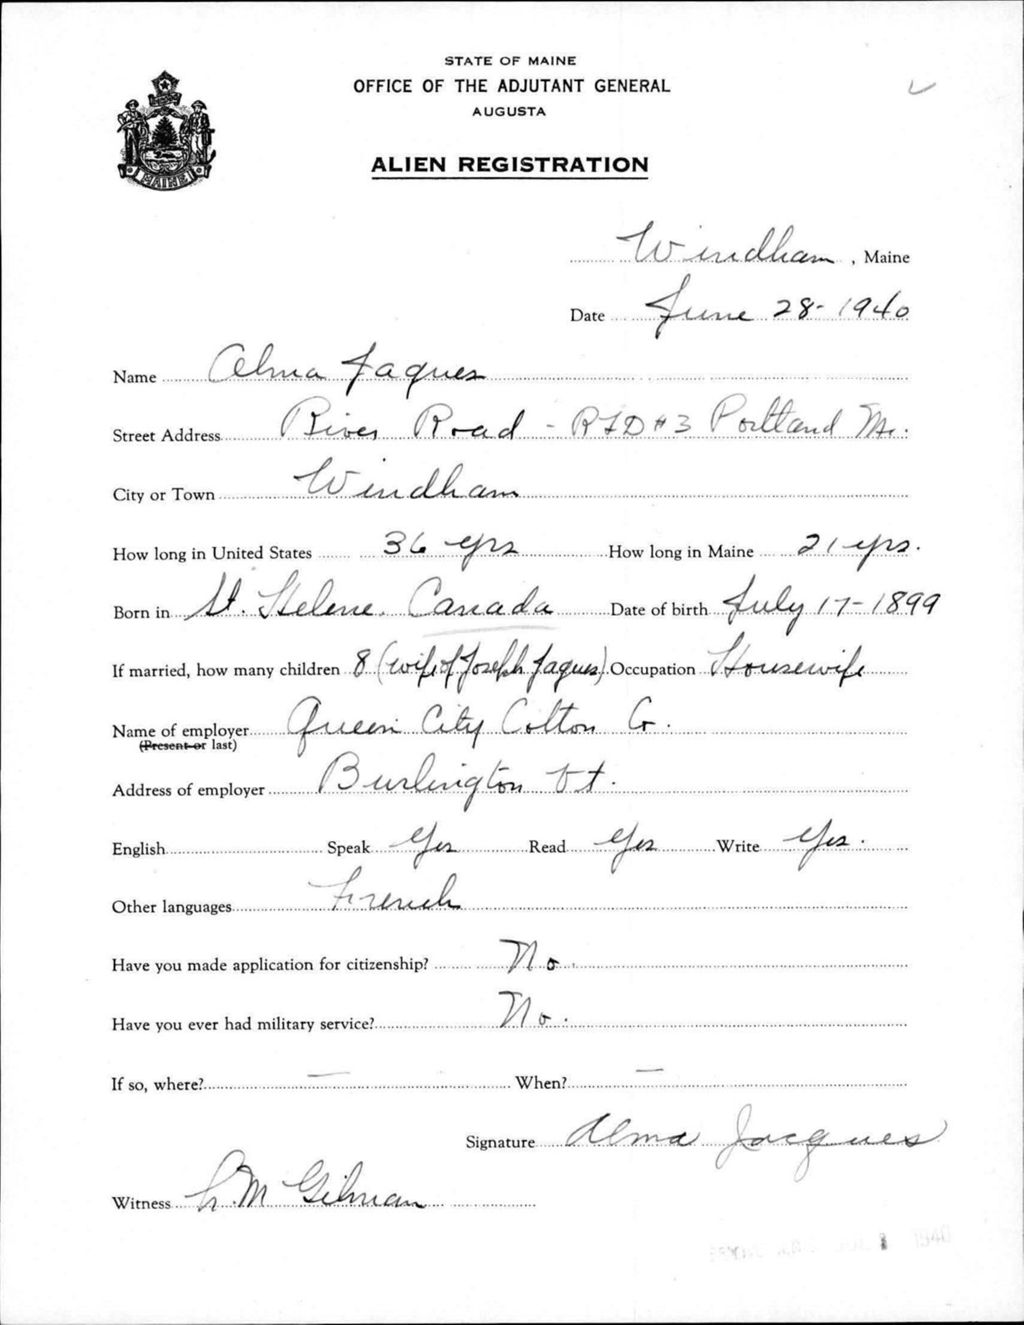 STATE OF MAINE
OFFICE OF THE ADJUTANT GENERAL
AUGUSTA
MAINE
ALIEN REGISTRATION
Windham, Maine
Date June 28-1940
Name Alma Jaques
Street Address River Road - RFD #3 Portland Me.
City or Town Windham
How long in United States 36 yrs How long in Maine 21 yrs.
Born in St. Helene. Canada Date of birth July 17-1899
If married, how many children 8 (wife of Joseph Jaques) Occupation Housewife
Name of employer Queen City Cotton Co.
(Present or last)
Address of employer Burlington Vt.
English Speak Yes Read Yes Write Yes.
Other languages French
Have you made application for citizenship? No.
Have you ever had military service? No.
If so, where? — When? —
Signature Alma Jacques
Witness L. M Gilman
1940